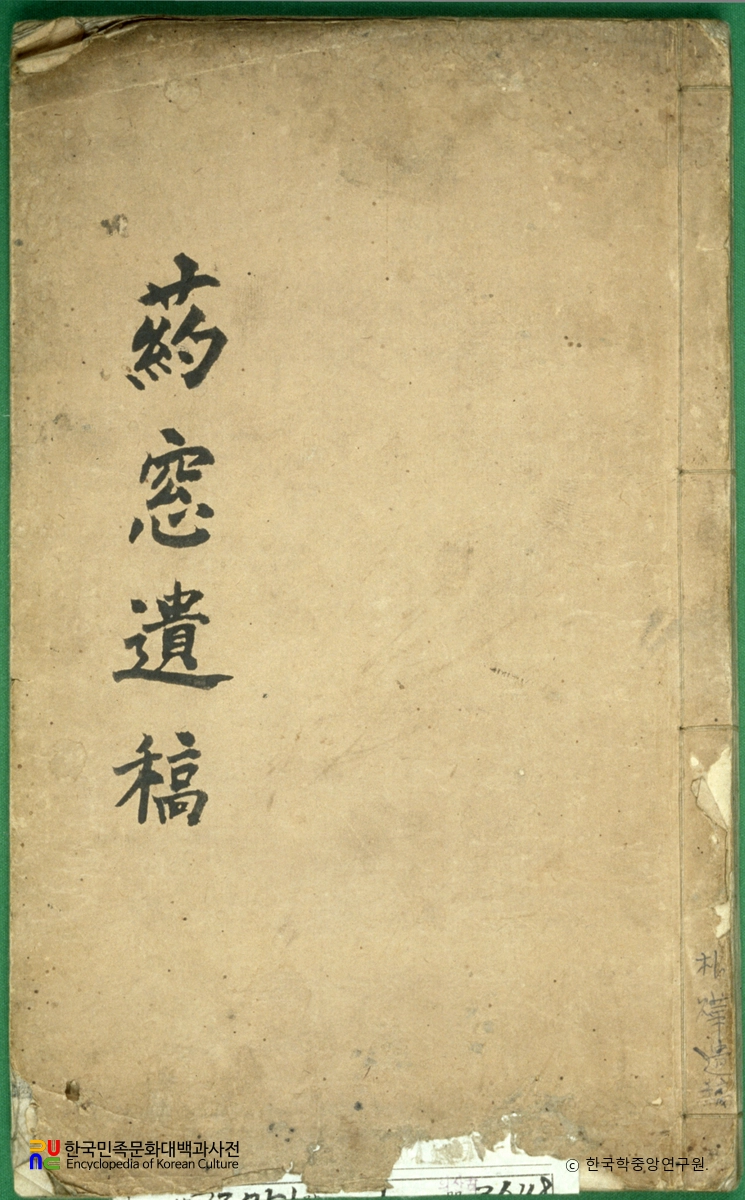 葯窓遺稿
한국민족문화대백과사전
Encyclopedia of Korean Culture
© 한국학중앙연구원.